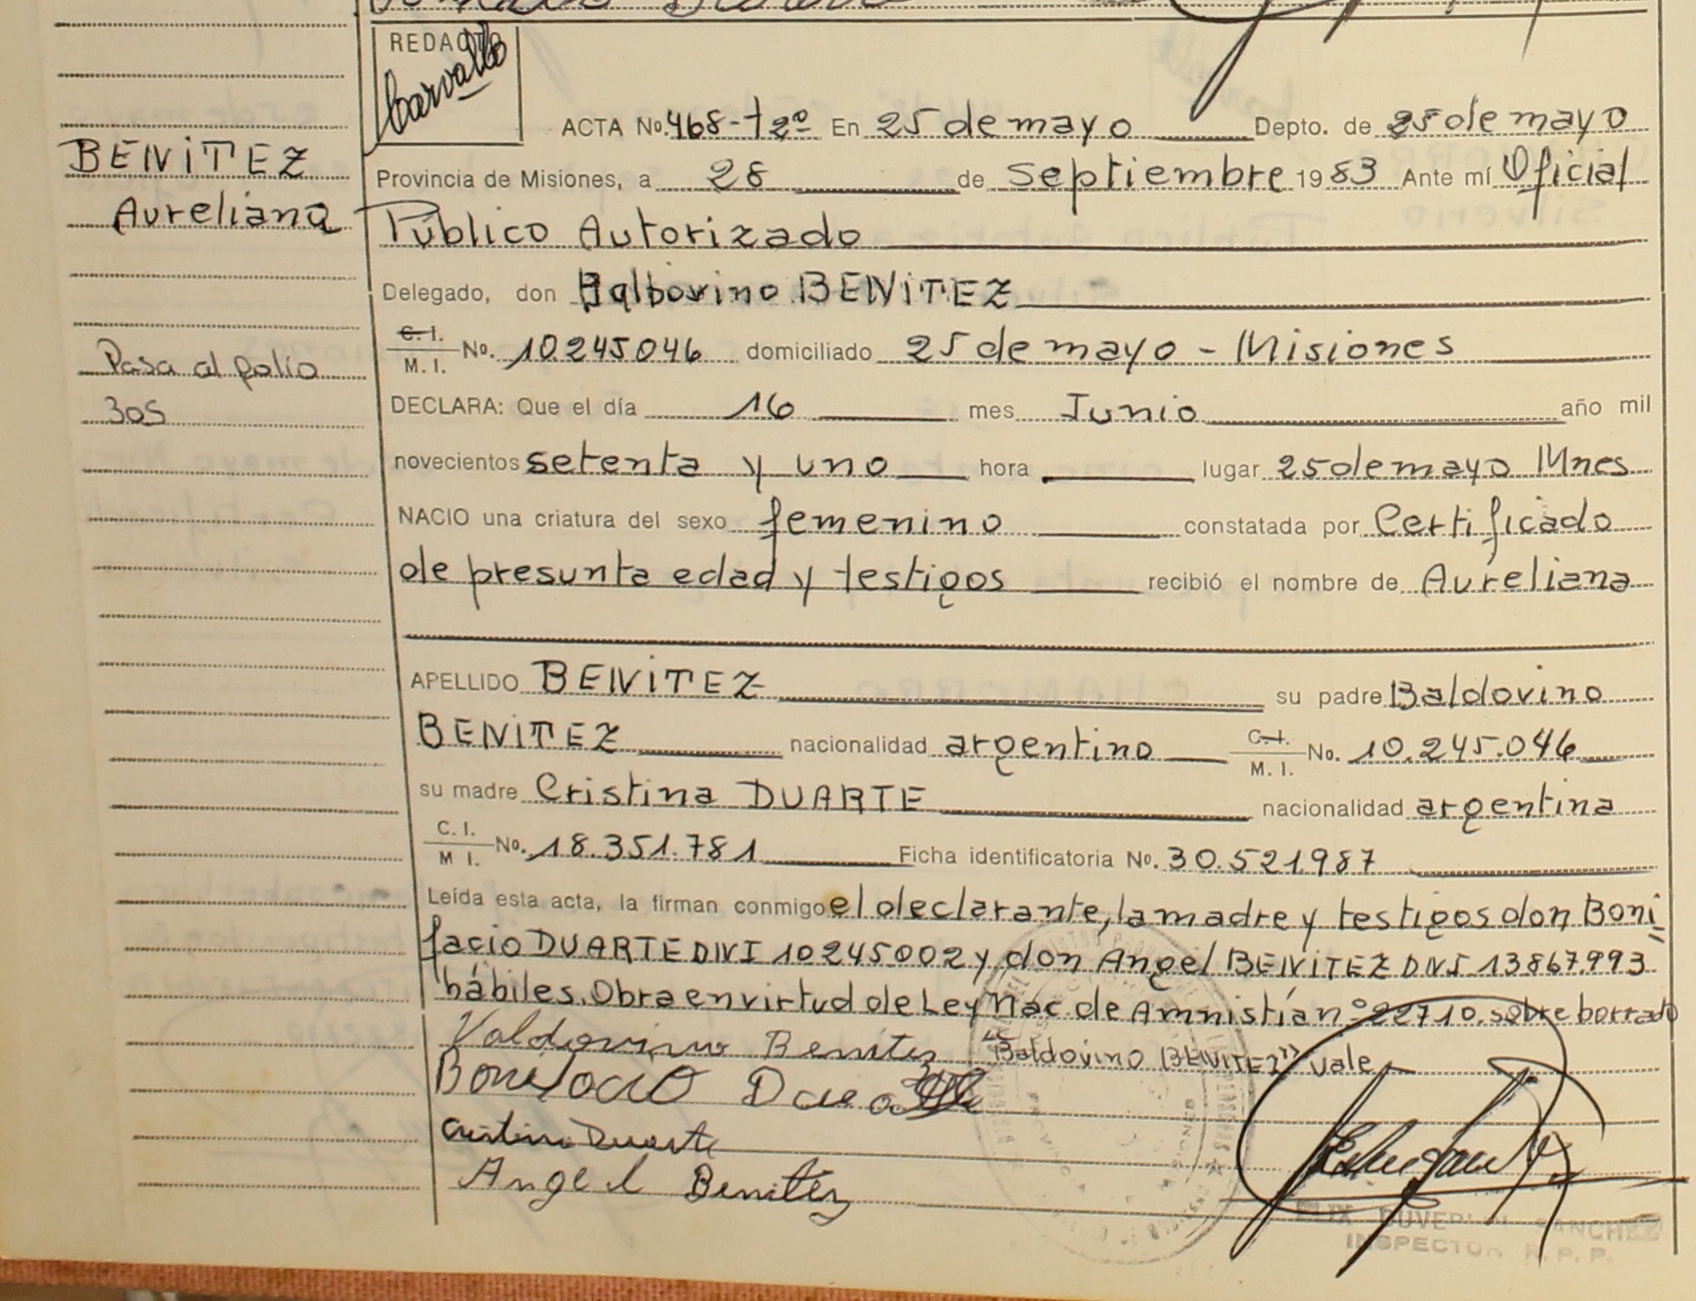 REDACTO
Carvallo
ACTA No. 468-t2º En 25 de mayo Depto. de 25 de mayo
BENITEZ
Aureliana
Provincia de Misiones, a 28 de Septiembre 1983 Ante mí Oficial
Público Autorizado
Delegado, don Baldovino BENITEZ
C. I.
M. I. No. 10245046 domiciliado 25 de mayo - Misiones
Pasa al folio
305
DECLARA: Que el día 16 mes Junio año mil
novecientos setenta y uno hora lugar 25 de mayo Mnes
NACIO una criatura del sexo femenino constatada por Certificado
de presunta edad y testigos recibió el nombre de Aureliana
APELLIDO BENITEZ su padre Baldovino
BENITEZ nacionalidad argentino C. I.
M. I. No. 10.245.046
su madre Cristina DUARTE nacionalidad argentina
C. I.
M I. No. 18.351.781 Ficha identificatoria No. 30.521.987
Leída esta acta, la firman conmigo el declarante, la madre y testigos don Boni
facio DUARTE DNI 10245002 y don Angel BENITEZ DNI 13867.993
hábiles. Obra en virtud de Ley Nac de Amnistía nº 22710. sobre borrado
"Baldovino BENITEZ" vale
Valdovino Benitez
Bonifacio Duarte
Cristina Duarte
Angel Benitez
SANCHEZ
INSPECTOR R. P. P.